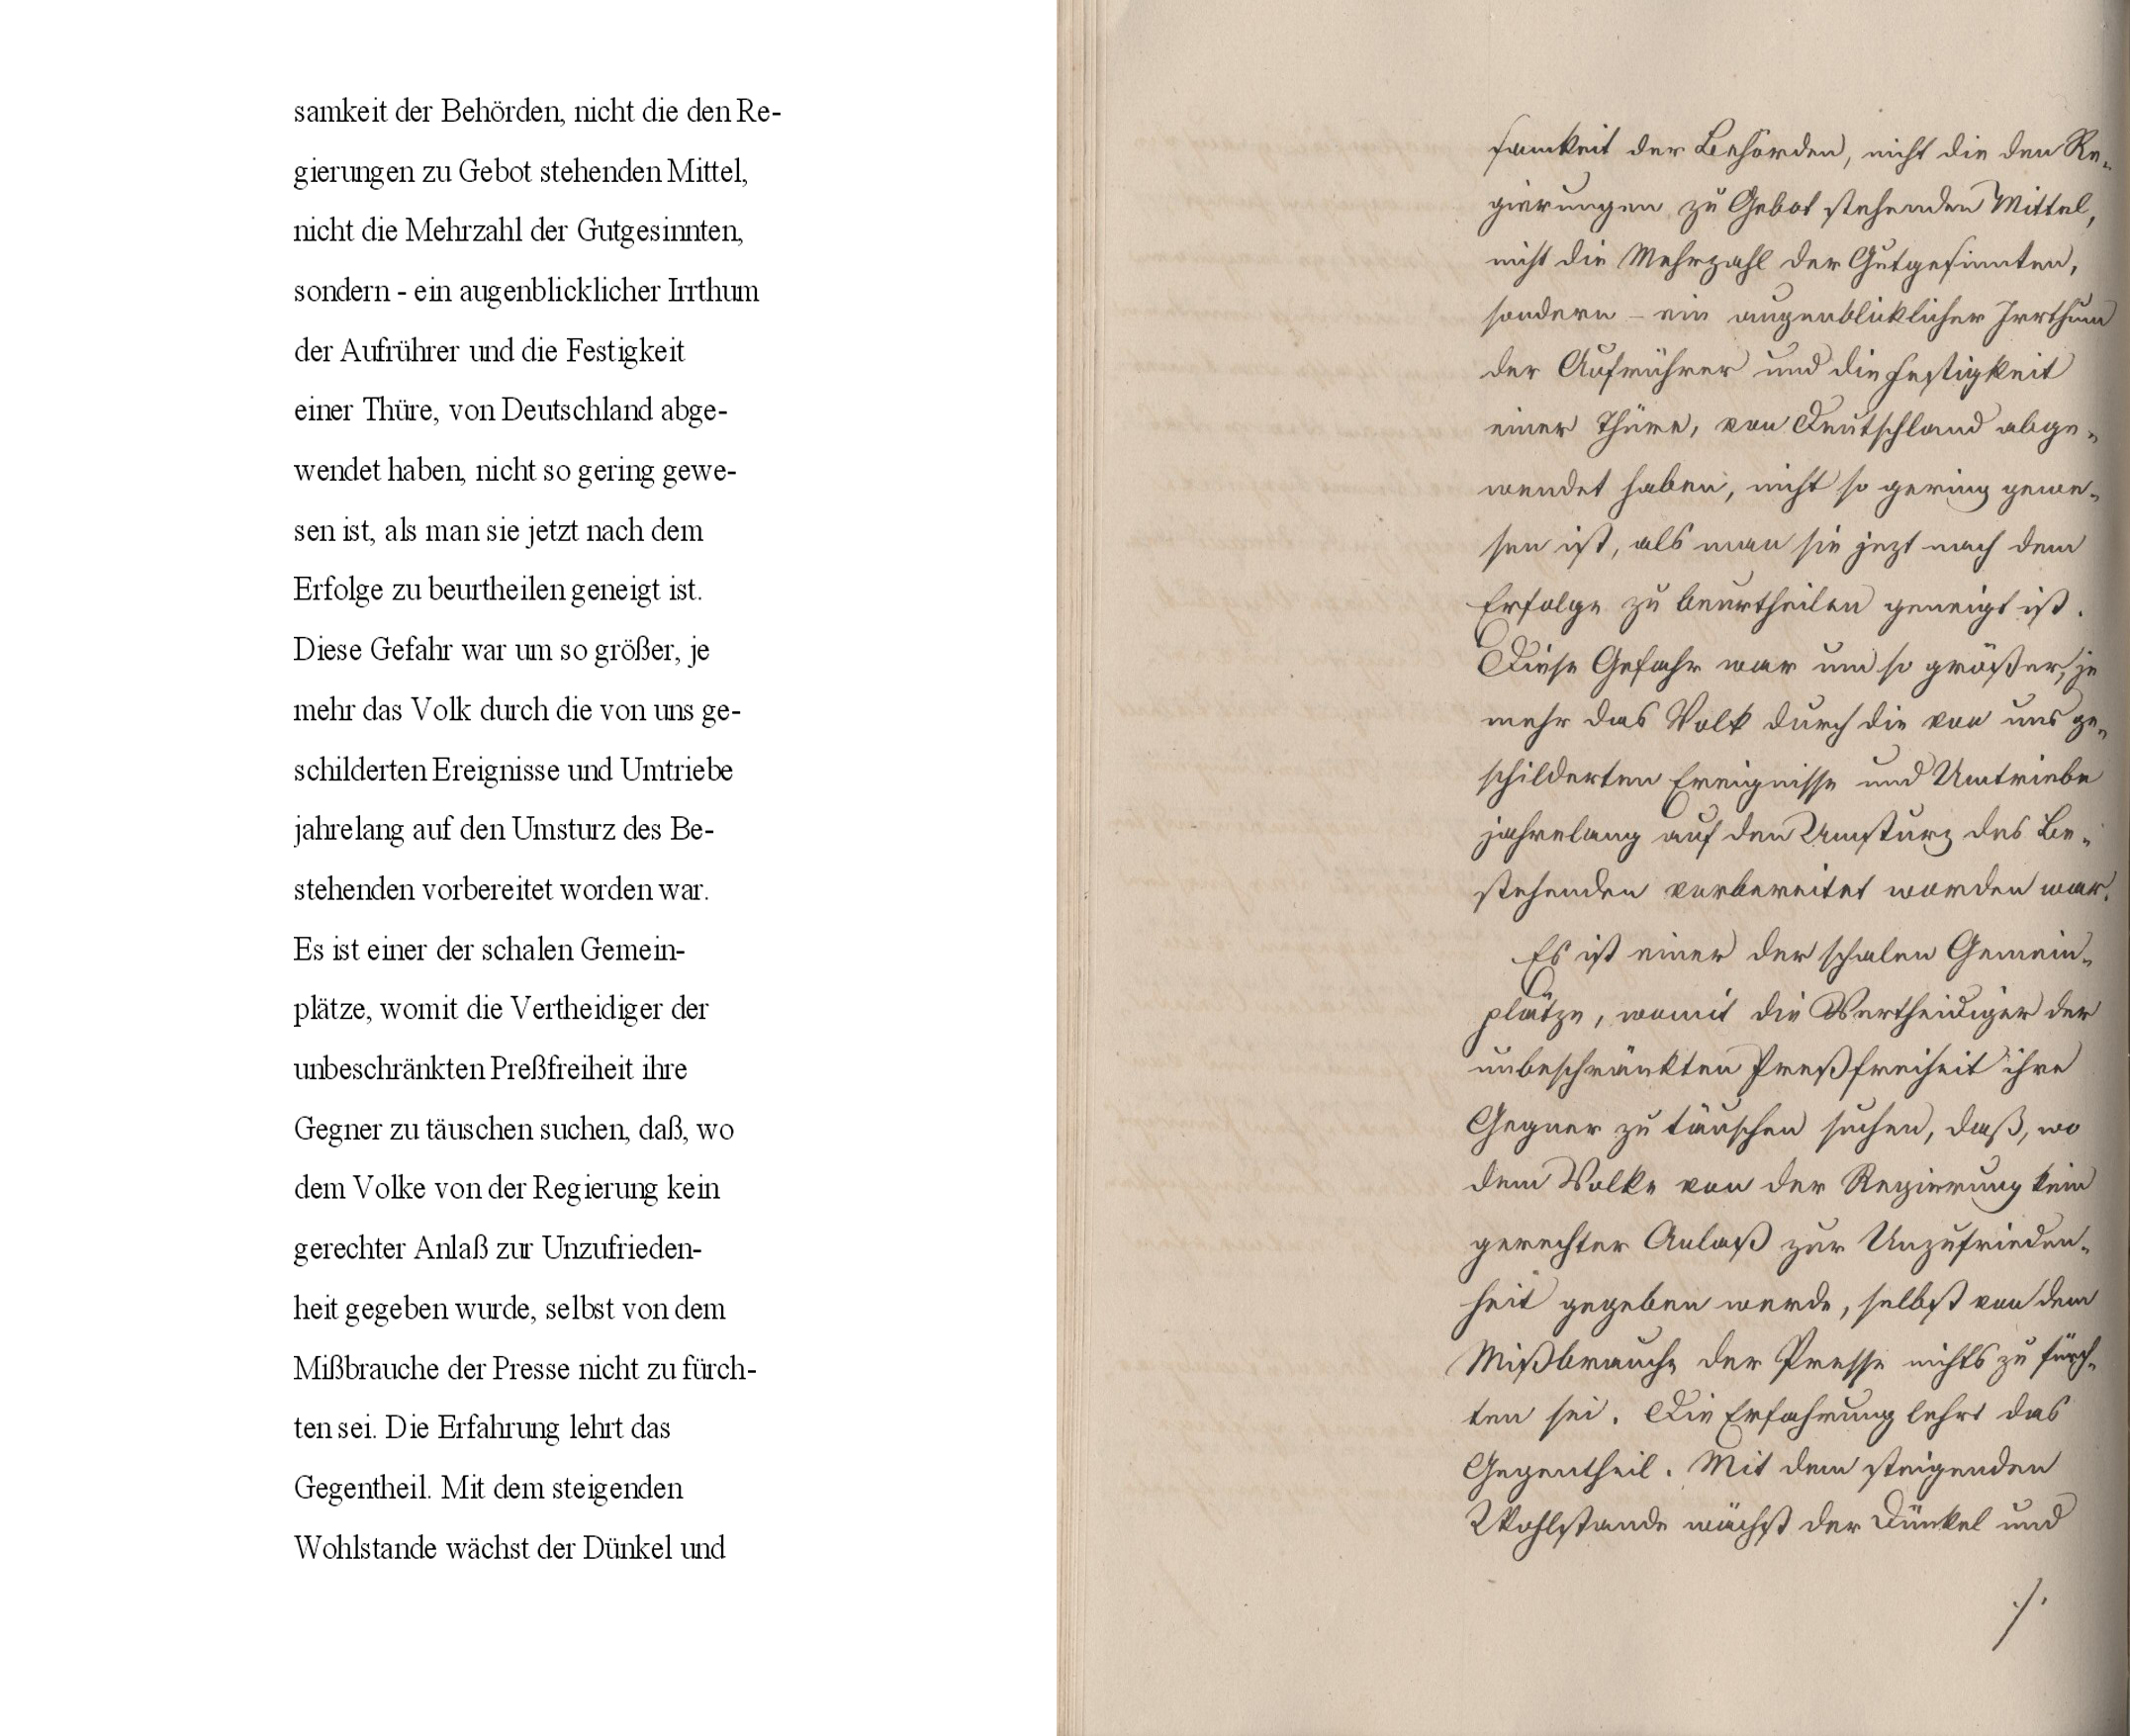 samkeit der Behörden, nicht die den Re-
gierungen zu Gebot stehenden Mittel,
nicht die Mehrzahl der Gutgesinnten,
sondern - ein augenblicklicher Irrthum
der Aufrührer und die Festigkeit
einer Thüre, von Deutschland abge-
wendet haben, nicht so gering gewe-
sen ist, als man sie jetzt nach dem
Erfolge zu beurtheilen geneigt ist.
Diese Gefahr war um so größer, je
mehr das Volk durch die von uns ge-
schilderten Ereignisse und Umtriebe
jahrelang auf den Umsturz des Be-
stehenden vorbereitet worden war.
Es ist einer der schalen Gemein-
plätze, womit die Vertheidiger der
unbeschränkten Preßfreiheit ihre
Gegner zu täuschen suchen, daß, wo
dem Volke von der Regierung kein
gerechter Anlaß zur Unzufrieden-
heit gegeben wurde, selbst von dem
Mißbrauche der Presse nicht zu fürch-
ten sei. Die Erfahrung lehrt das
Gegentheil. Mit dem steigenden
Wohlstande wächst der Dünkel und
samkeit der Behörden, nicht die den Re-
gierungen zu Gebot stehenden Mittel,
nicht die Mehrzahl der Gutgesinnten,
sondern – ein augenblicklicher Irrthum
der Aufrührer und die Festigkeit
einer Thüre, von Deutschland abge-
wendet haben, nicht so gering gewe-
sen ist, als man sie jezt nach dem
Erfolge zu beurtheilen geneigt ist.
Diese Gefahr war um so größer, je
mehr das Volk durch die von uns ge-
schilderten Ereignisse und Umtriebe
jahrelang auf den Umsturz des Be-
stehenden vorbereitet worden war.
Es ist einer der schalen Gemein-
plätze, womit die Vertheidiger der
unbeschränkten Preßfreiheit ihre
Gegner zu täuschen suchen, daß, wo
dem Volke von der Regierung kein
gerechter Anlaß zur Unzufrieden-
heit gegeben werde, selbst von dem
Mißbrauche der Presse nichts zu fürch-
ten sei. Die Erfahrung lehrt das
Gegentheil. Mit dem steigenden
Wohlstande wächst der Dünkel und
./.